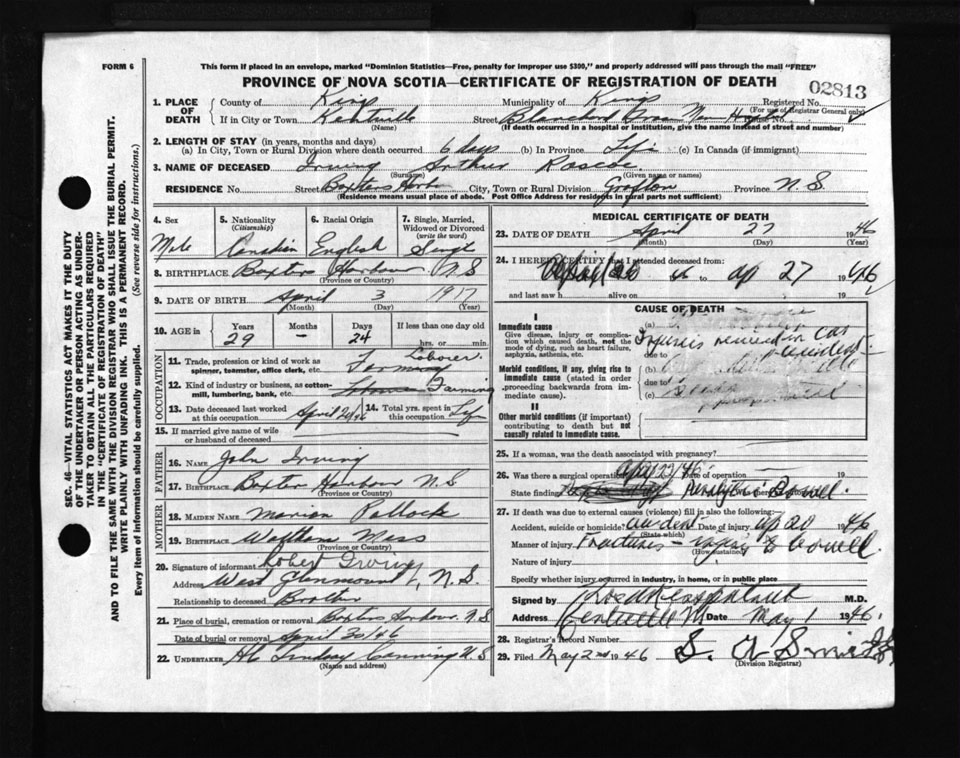 FORM 6
This form if placed in an envelope, marked "Dominion Statistics—Free, penalty for improper use $300," and properly addressed will pass through the mail "FREE"
PROVINCE OF NOVA SCOTIA—CERTIFICATE OF REGISTRATION OF DEATH
02813
SEC. 46—VITAL STATISTICS ACT MAKES IT THE DUTY
OF THE UNDERTAKER OR PERSON ACTING AS UNDER-
TAKER TO OBTAIN ALL THE PARTICULARS REQUIRED
IN THE "CERTIFICATE OF REGISTRATION OF DEATH"
AND TO FILE THE SAME WITH THE DIVISION REGISTRAR WHO SHALL ISSUE THE BURIAL PERMIT.
WRITE PLAINLY WITH UNFADING INK. THIS IS A PERMANENT RECORD.
Every item of information should be carefully supplied. (See reverse side for instructions.)
1. PLACE OF DEATH County of Kings Municipality of Kings Registered No.
(For use of Registrar General only)
If in City or Town Kentville Street Blanchard
(Name) (If death occurred in a hospital or institution, give the name instead of street and number)
2. LENGTH OF STAY (in years, months and days)
(a) In City, Town or Rural Division where death occurred 6 days (b) In Province Life (c) In Canada (if immigrant)
3. NAME OF DECEASED Irving Arthur Roscoe
(Surname) (Given name or names)
RESIDENCE No. Street Baxters Harbor City, Town or Rural Division Grafton Province N.S.
(Residence means usual place of abode. Post Office Address for residents in rural parts not sufficient)
4. Sex 5. Nationality 6. Racial Origin 7. Single, Married, Widowed or Divorced
(Citizenship) (write the word)
Male Canadian English Single
8. BIRTHPLACE Baxters Harbour N.S
(Province or Country)
9. DATE OF BIRTH April 3 1917
(Month) (Day) (Year)
10. AGE in Years Months Days If less than one day old
29 – 24 hrs. or min.
OCCUPATION
11. Trade, profession or kind of work as spinner, teamster, office clerk, etc. Laborer Farming
12. Kind of industry or business, as cotton-mill, lumbering, bank, etc. Farming
13. Date deceased last worked at this occupation April 20/46 14. Total yrs. spent in this occupation Life
15. If married give name of wife or husband of deceased
FATHER
16. NAME John Irving
17. BIRTHPLACE Baxter Harbour N.S
(Province or Country)
MOTHER
18. MAIDEN NAME Marion Pollock
19. BIRTHPLACE Waltham Mass
(Province or Country)
20. Signature of informant Robert Irving
Address West Glenmount, N.S.
Relationship to deceased Brother
21. Place of burial, cremation or removal Baxters Harbour N.S
Date of burial or removal April 30/46
22. UNDERTAKER Lindsay Canning N.S
(Name and address)
MEDICAL CERTIFICATE OF DEATH
23. DATE OF DEATH April 27 1946
(Month) (Day) (Year)
24. I HEREBY CERTIFY that I attended deceased from:
46 to ap 27 1946
and last saw h alive on 19
CAUSE OF DEATH
I
Immediate cause
Give disease, injury or complication which caused death, not the mode of dying, such as heart failure, asphyxia, asthenia, etc.
(a) Injuries received in Car
due to accident
Morbid conditions, if any, giving rise to immediate cause (stated in order proceeding backwards from immediate cause).
(b)
due to
(c)
II
Other morbid conditions (if important) contributing to death but not causally related to immediate cause.
25. If a woman, was the death associated with pregnancy?
26. Was there a surgical operation? Date of operation 19
State findings Bowel.
27. If death was due to external causes (violence) fill in also the following:
Accident, suicide or homicide? accident Date of injury ap 20 1946
(State which)
Manner of injury Fractures – injury to bowel.
(How sustained)
Nature of injury
Specify whether injury occurred in industry, in home, or in public place
Signed by M.D.
Address Date May 1 1946
28. Registrar's Record Number
29. Filed May 2nd 1946 S.
(Division Registrar)